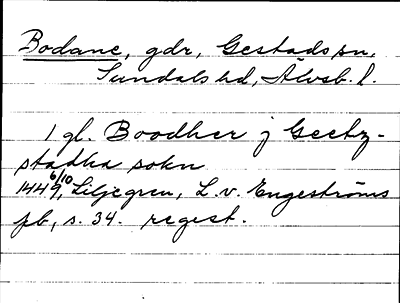 Bodane, gdr, Gestads sn,
Sundals hd, Älvsb. l.
1 gl. Boodher j Geetz-
stadha sokn
1449 6/10, Liljegren, L. v. Engeströms
pb, s. 34. regest.